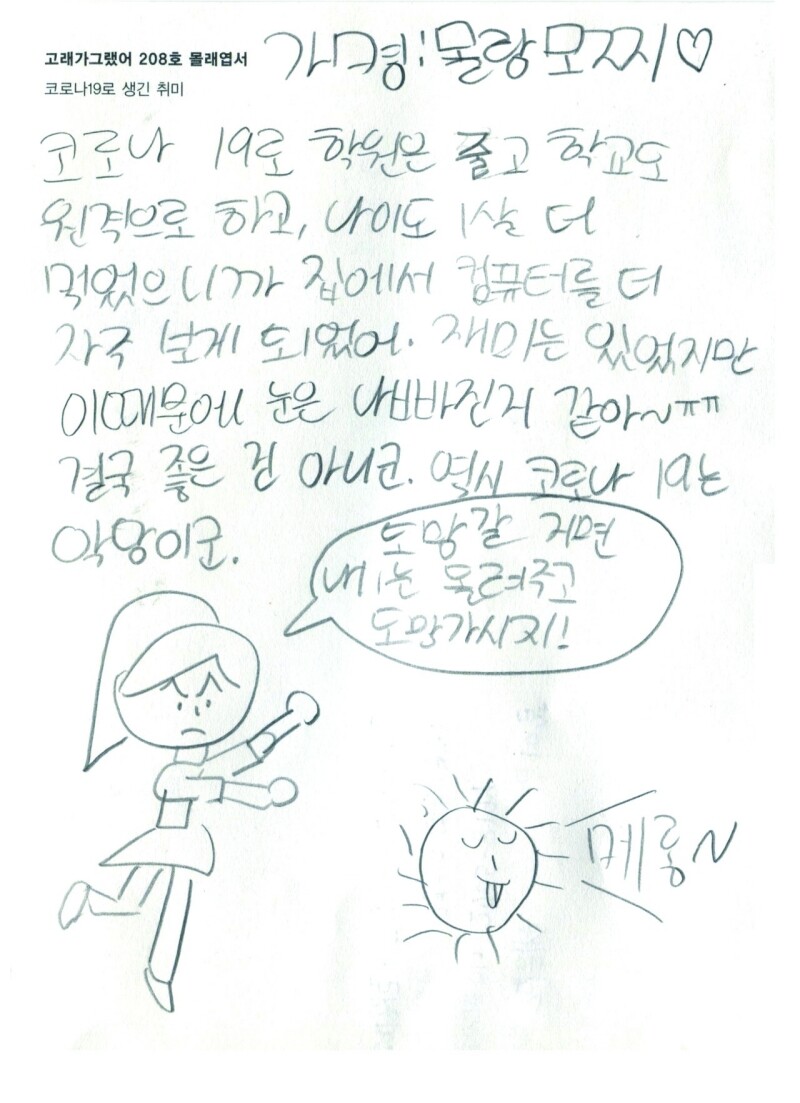 고래가그랬어 208호 몰래엽서
코로나19로 생긴 취미
가명:몰랑모찌♡
코로나 19로 학원은 줄고 학교도
원격으로 하고, 나이도 1살 더
먹었으니까 집에서 컴퓨터를 더
자주 보게 되었어. 재미는 있었지만
이때문에 눈은 나빠진거 같아~ㅠㅠ
결국 좋은 건 아니군. 역시 코로나 19는
악당이군.
도망갈 거면
내 눈 돌려주고
도망가시지!
메롱~